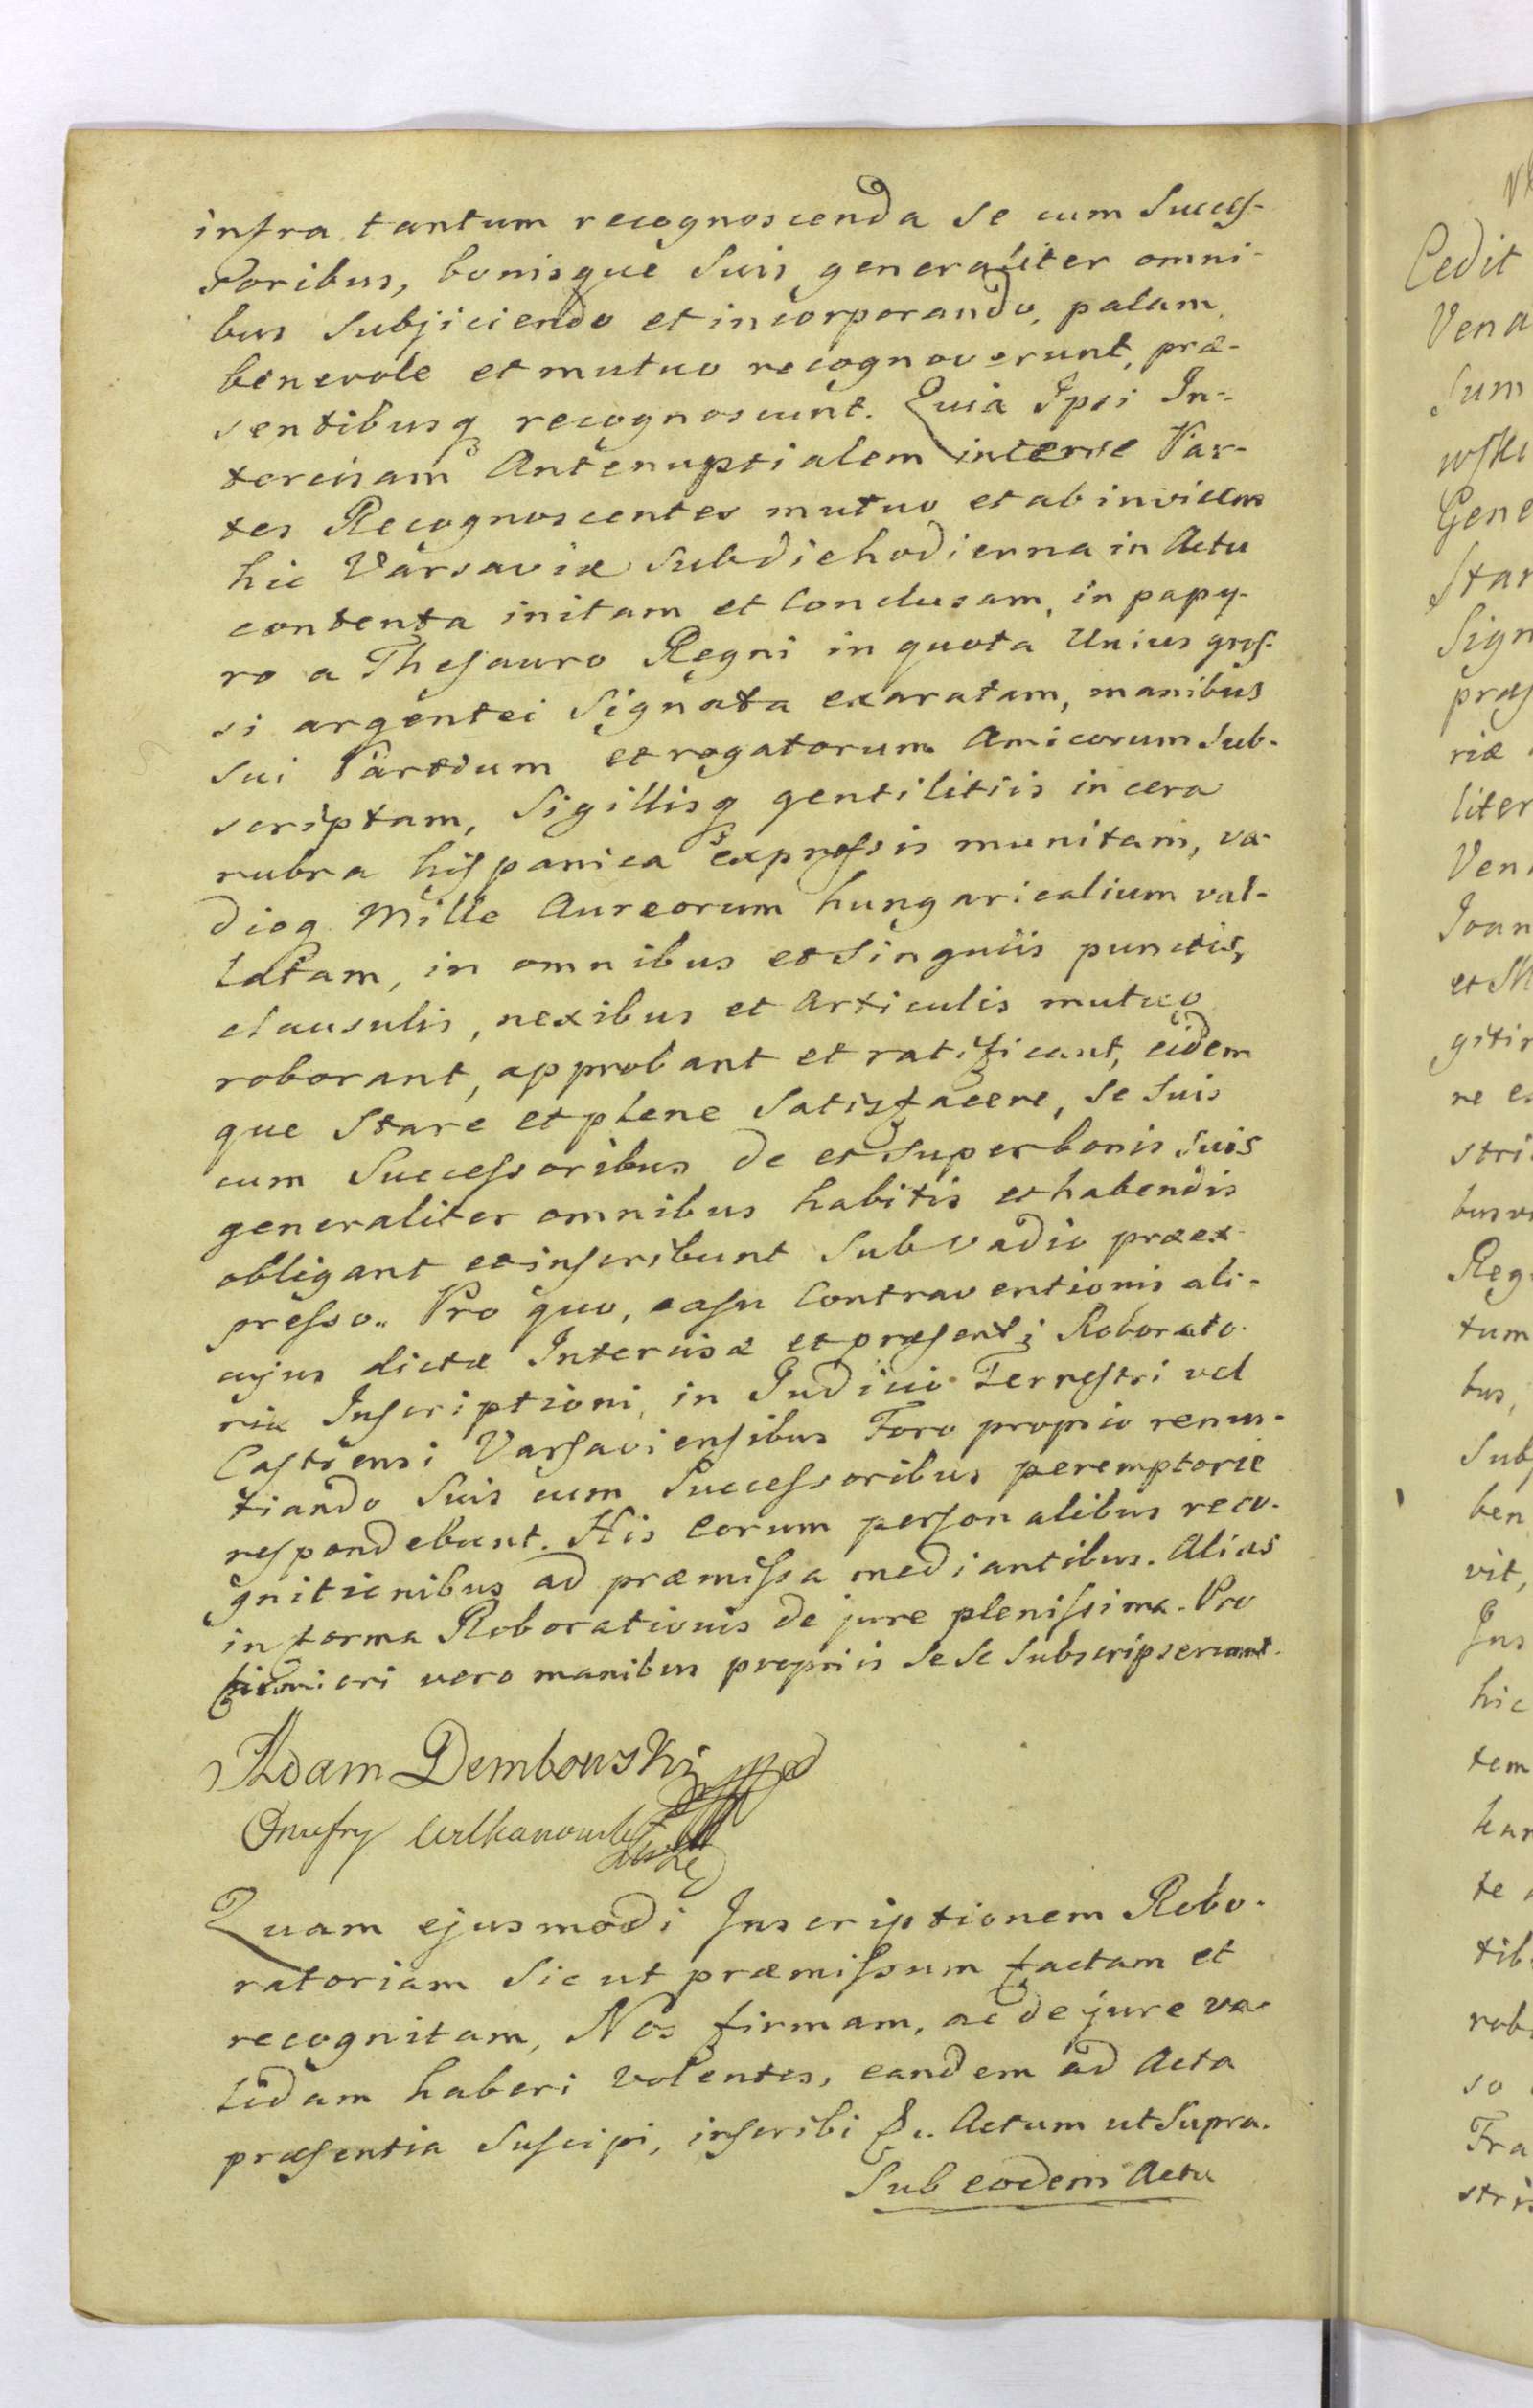 infra tantum recognoscenda se cum Succes-
soribus, bonisque Suis generaliter omni-
bus Subjiciendo et incorporando, palam
benevole et mutuo recognoverunt, præ-
sentibusq recognoscunt. Quia Ipsi In-
tercisam Antenuptialem interse Par-
tes Recognoscentes mutuo et ab invicem
hic Varsaviæ sub die hodierna in Actu
contenta initam et Conclusam, in papy-
ro a Thesauro Regni in quota Unius gros-
si argentei Signata exaratam, manibus
Sui Partium et rogatorum Amicorum Sub-
scriptam, Sigillisq gentilitiis in cera
rubra hispanica expressis munitam, va-
dioq Mille Aureorum hungaricalium val-
latam, in omnibus et Singulis punctis,
clausulis, nexibus et Articulis mutuo
roborant, approbant et ratificant, eidem
que Stare et plene Satisfacere, se Suis
cum Successoribus de et Super bonis Suis
generaliter omnibus habitis et habendis
obligant et inscribunt Sub vadio præex-
presso. Pro quo, casu Contraventionis ali-
cujus dictæ Intercisæ et præsenti Roborato-
riæ Inscriptioni, in Judicio Terrestri vel
Castrensi Varsaviensibus Foro proprio renun-
tiando Suis cum Successoribus peremptorie
respondebunt. His Eorum personalibus reco-
gnitionibus ad præmissa mediantibus. Alias
in forma Roborationis de jure plenissima. Pro
vero manibus propriis Sese Subscripserunt.
Adam Dembowski
Onufry
Quam ejusmodi Inscriptionem Robo-
ratoriam Sicut præmissum factam et
recognitam, Nos firmam, ac de jure va-
lidam haberi volentes, eandem ad Acta
præsentia Suscipi, inscribi &c. Actum ut Supra.
Sub eodem Actu
Cedit
Gene
Sign
liter
Joan
tum
bus,
vit,
hic
tem